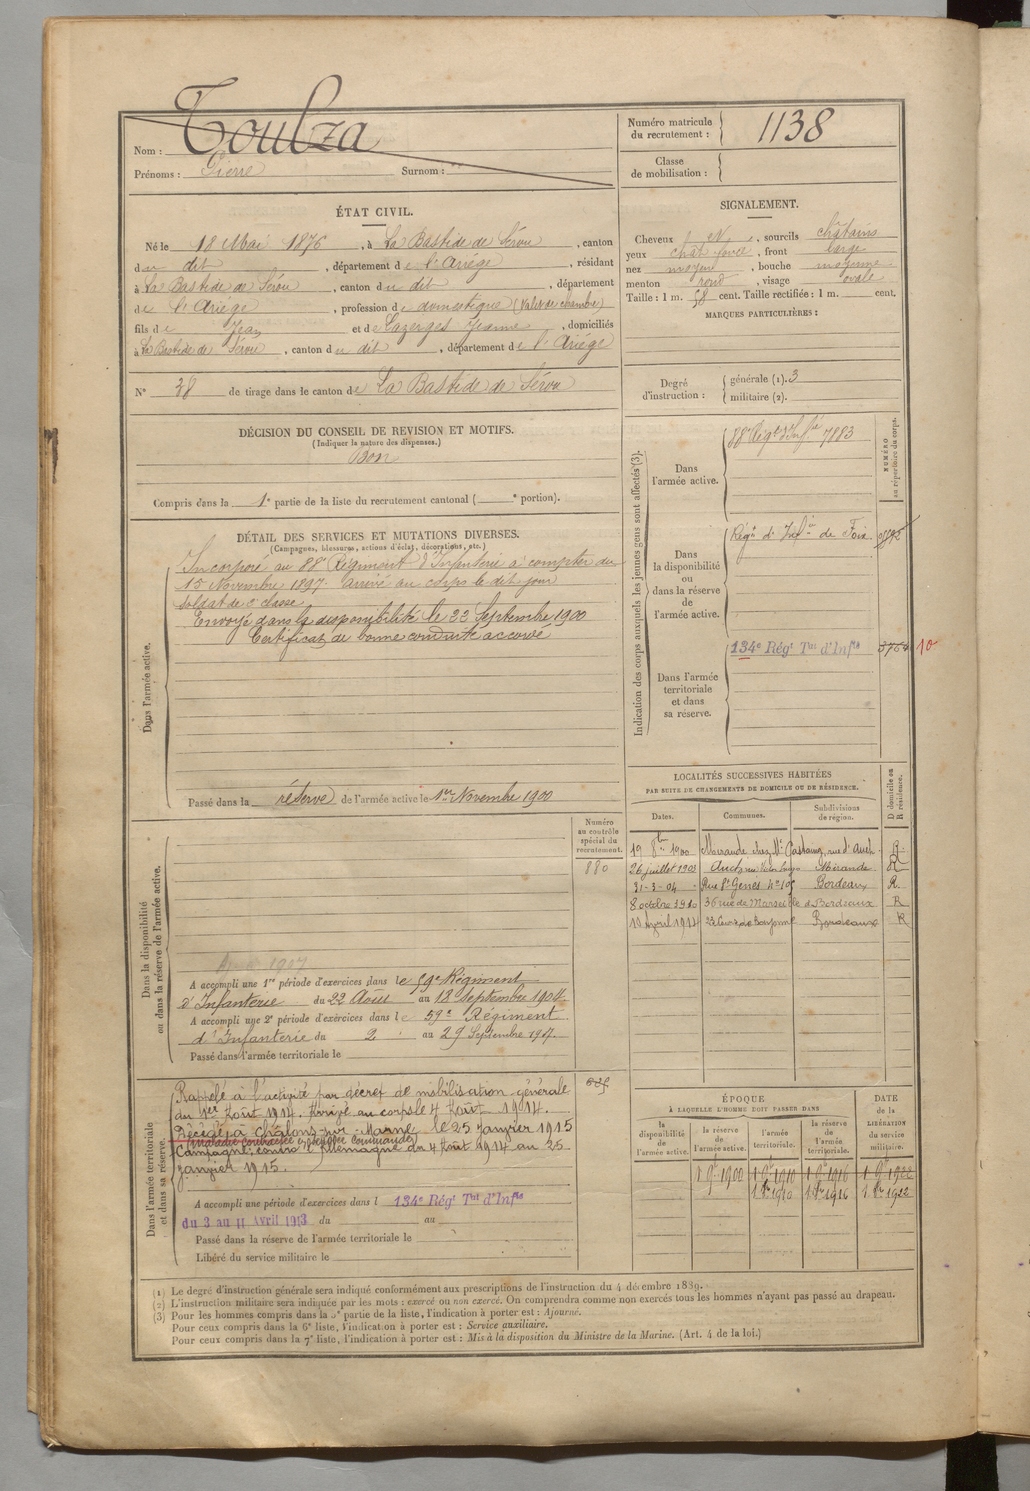 Nom : Toulza
Prénoms : Pierre Surnom :
Numéro matricule du recrutement : 1138
Classe de mobilisation :
ÉTAT CIVIL.
Né le 18 Mai 1876, à La Bastide de Sérou, canton
du dit, département de l'Ariège, résidant
à La Bastide de Sérou, canton du dit, département
de l'Ariège, profession de domestique (valet de chambre)
fils de Jean et de Lazerges Jeanne, domiciliés
à La Bastide de Sérou, canton du dit, département de l'Ariège
N° 38 de tirage dans le canton de La Bastide de Sérou
SIGNALEMENT.
Cheveux N, sourcils châtains
yeux chât foncé, front large
nez moyen, bouche moyenne
menton rond, visage ovale
Taille : 1 m. 58 cent. Taille rectifiée : 1 m. cent.
MARQUES PARTICULIÈRES :
Degré d'instruction : générale (1). 3
militaire (2).
DÉCISION DU CONSEIL DE REVISION ET MOTIFS.
(Indiquer la nature des dispenses.)
Bon
Compris dans la 1e partie de la liste du recrutement cantonal ( e portion).
DÉTAIL DES SERVICES ET MUTATIONS DIVERSES.
(Campagnes, blessures, actions d'éclat, décorations, etc.)
Dans l'armée active.
Incorporé au 88e Régiment d'Infanterie à compter du
15 Novembre 1897. arrivé au corps le dit jour
soldat de 2e classe
Envoyé dans la disponibilité le 22 Septembre 1900
Certificat de bonne conduite accordé
Passé dans la réserve de l'armée active le 1er Novembre 1900
Indication des corps auxquels les jeunes gens sont affectés (3).
NUMÉRO au répertoire du corps.
Dans l'armée active.
88e Régt d'Infie 7883
Dans la disponibilité ou dans la réserve de l'armée active.
Régt d'Infie de Foix
Dans l'armée territoriale et dans sa réserve.
134e Régt Tal d'Infie 10
LOCALITÉS SUCCESSIVES HABITÉES
PAR SUITE DE CHANGEMENTS DE DOMICILE OU DE RÉSIDENCE.
Dates. Communes. Subdivisions de région. D domicile ou R résidence.
19 8bre 1900 Mirande chez Mr rue d'Auch R.
26 juillet 1903 Auch Mirande R
31-3-04 Rue St Genès Bordeaux R.
8 octobre 1910 36 rue de Marseille à Bordeaux R
10 Avril 1914 Bordeaux R
Dans la disponibilité ou dans la réserve de l'armée active.
Numéro au contrôle spécial du recrutement.
880
1907
A accompli une 1re période d'exercices dans le 59e Régiment
d'Infanterie du 22 Août au 18 Septembre 1904
A accompli une 2e période d'exercices dans le 59e Régiment
d'Infanterie du 2 au 29 Septembre 1907.
Passé dans l'armée territoriale le
Dans l'armée territoriale et dans sa réserve.
Rappelé à l'activité par décret de mobilisation générale
du 1er Août 1914. Arrivé au corps le 4 Août 1914.
Décédé à Châlons-sur-Marne le 25 Janvier 1915
Maladie contractée en service commandé
Campagne contre l'Allemagne du 4 Août 1914 au 25
Janvier 1915.
A accompli une période d'exercices dans l 134e Régt Tal d'Infie
du 3 au 11 Avril 1913 du au
Passé dans la réserve de l'armée territoriale le
Libéré du service militaire le
ÉPOQUE
À LAQUELLE L'HOMME DOIT PASSER DANS
la disponibilité de l'armée active. la réserve de l'armée active. l'armée territoriale. la réserve de l'armée territoriale.
DATE de la LIBÉRATION du service militaire.
1 9bre 1900 1 9bre 1910 1 9bre 1916 1 9bre 1922
1. 8bre 1910 1. 8bre 1916 1. 8bre 1922
(1) Le degré d'instruction générale sera indiqué conformément aux prescriptions de l'instruction du 4 décembre 1889.
(2) L'instruction militaire sera indiquée par les mots : exercé ou non exercé. On comprendra comme non exercés tous les hommes n'ayant pas passé au drapeau.
(3) Pour les hommes compris dans la 5e partie de la liste, l'indication à porter est : Ajourné.
Pour ceux compris dans la 6e liste, l'indication à porter est : Service auxiliaire.
Pour ceux compris dans la 7e liste, l'indication à porter est : Mis à la disposition du Ministre de la Marine. (Art. 4 de la loi.)